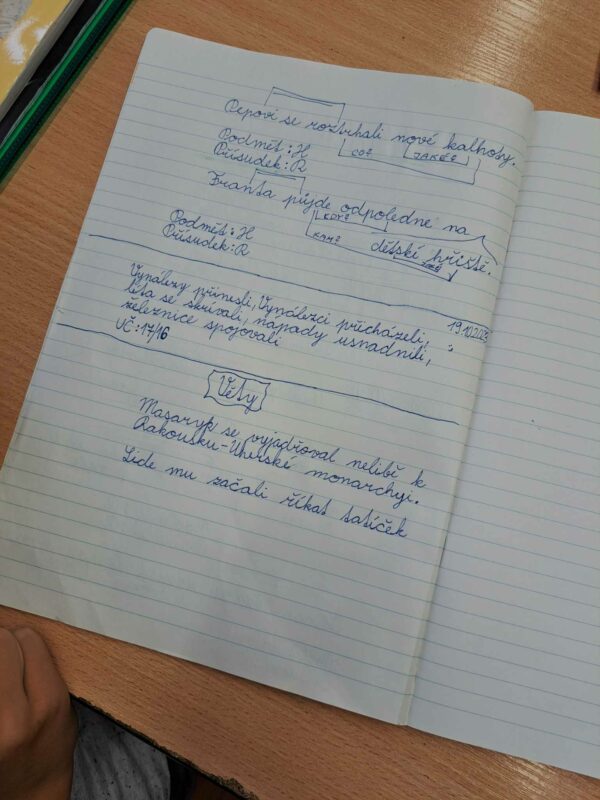 Pepovi se roztrhali nové kalhoty.
Podmět: H
CO? JAKÉ?
Přísudek: R
Franta půjde odpoledne na
KDY?
Podmět: H
KAM? dětské hřiště.
Přísudek: R
19.10.202
Vynálezy přinesli, Vynálezci přicházeli,
léta se skrívali, nápady usnadnili,
železnice spojovali
UČ: 17/16
Věty
Masaryk se vyjadřoval nelibě k
Rakousku-Uherské monarchyi.
Lide mu začali říkat tatíček